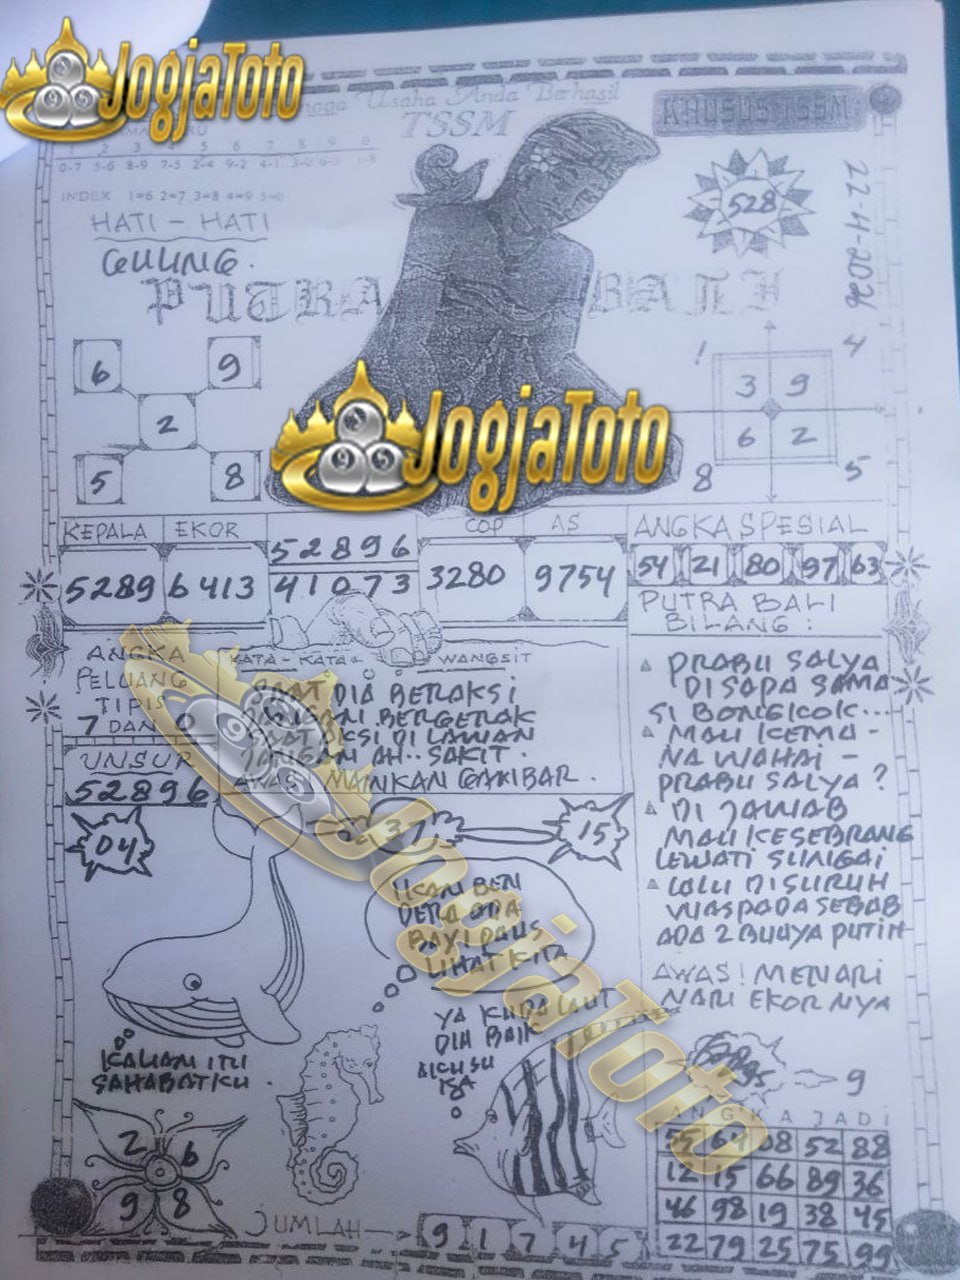 JogjaToto
Usaha Anda Berhasil
TSSM
KHUSUS TSSM
2 3 5 6 7 8 9 0
0-7 5-6 8-9 7-5 2-4 9-2 4-1 3-0
INDEX 1=6 2=7 3=8 4=9 5=0
HATI - HATI
528
22-4-2026
PUTRA BALI
6 9
2
5 8
1 4
3 9
6 2
8 5
JogjaToto
KEPALA EKOR COP AS ANGKA SPESIAL
52896
5289 6413 41073 3280 9754
54 21 80 97 63
PUTRA BALI
BILANG :
ANGKA
PELUANG
TIPIS
7 DAN 0
UNSUR
52896
KATA - KATA WANGSIT
SAAT DIA BERAKSI
JANGAN BERGERAK
SAAT AKSI DI LAWAN
JANGAN AH.. SAKIT .
AWAS MAINKAN GAMBAR .
PRABU SALYA
DI SAPA SAMA
SI BONGKOK...
MAU KEMA -
NA WAHAI -
PRABU SALYA ?
DI JAWAB
MAU KESEBRANG
LEWATI SUNGAI
LALU DISURUH
WASPADA SEBAB
ADA 2 BUAYA PUTIH
AWAS! MENARI
NARI EKOR NYA
04
37
15
JogjaToto
IKAN BEN
DERA ADA
BAYI PAUS
LIHAT KITA
YA KUDA LAUT
DIA BAIK
KALIAN ITU
SAHABATKU .
9
2 6
9 8
JUMLAH
9 1 7 4 5
ANGKA JADI
55 64 08 52 88
12 15 66 89 36
46 98 19 38 45
22 79 25 75 99